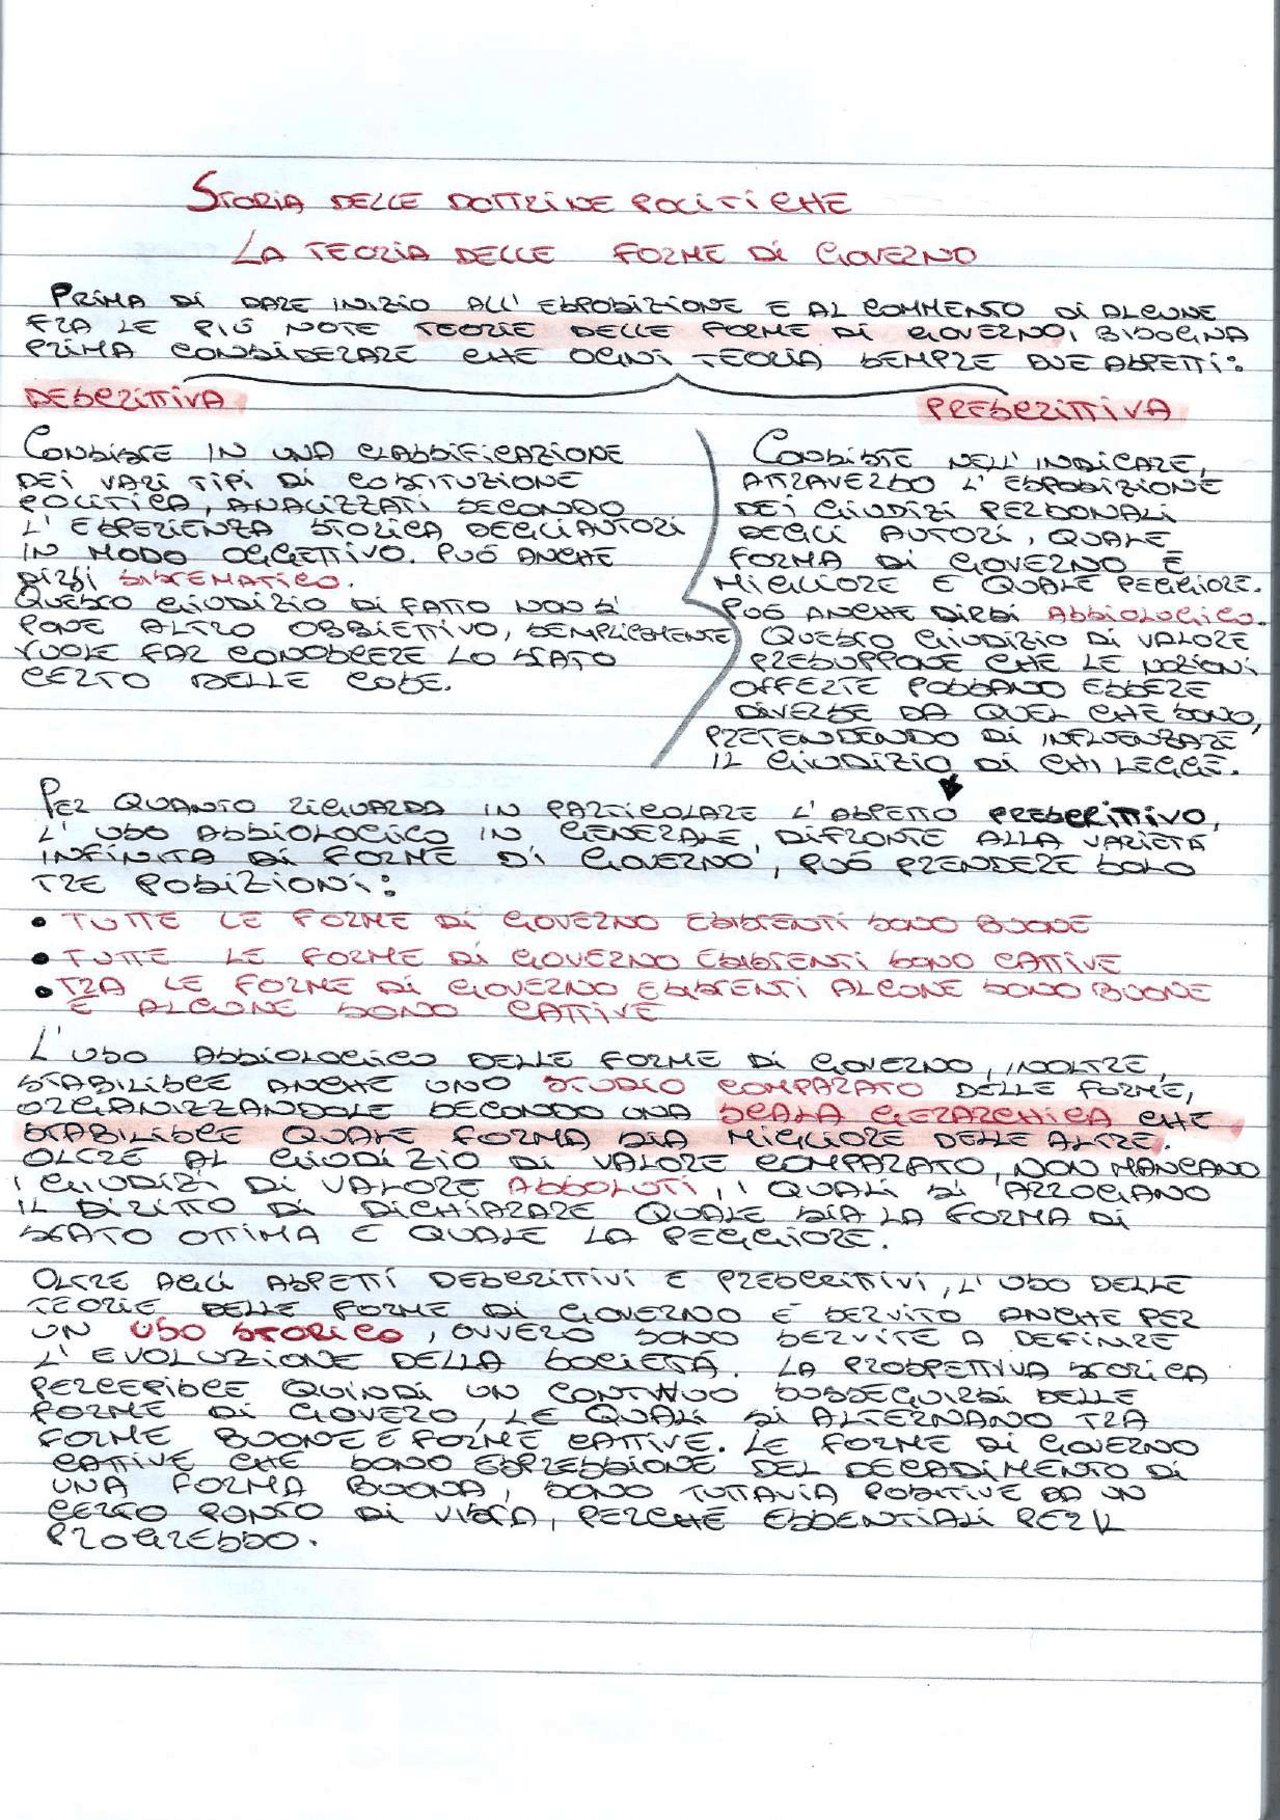 STORIA DELLE DOTTRINE POLITICHE
LA TEORIA DELLE FORME DI GOVERNO
PRIMA DI DARE INIZIO ALL'ESPOSIZIONE E AL COMMENTO DI ALCUNE
FRA LE PIÙ NOTE TEORIE DELLE FORME DI GOVERNO, BISOGNA
PRIMA CONSIDERARE CHE OGNI TEORIA SEMPRE DUE ASPETTI:
DESCRITTIVA
CONSISTE IN UNA CLASSIFICAZIONE
DEI VARI TIPI DI COSTITUZIONE
POLITICA, ANALIZZATI SECONDO
L'ESPERIENZA STORICA DEGLI AUTORI
IN MODO OGGETTIVO. PUÓ ANCHE
DIRSI SISTEMATICO.
QUESTO GIUDIZIO DI FATTO NON SI
PONE ALTRO OBBIETTIVO, SEMPLICEMENTE
VUOLE FAR CONOSCERE LO STATO
CERTO DELLE COSE.
PRESCRITTIVA
CONSISTE NELL'INDICARE,
ATTRAVERSO L'ESPOSIZIONE
DEI GIUDIZI PERSONALI
DEGLI AUTORI, QUALE
FORMA DI GOVERNO É
MIGLIORE E QUALE PEGGIORE.
PUÓ ANCHE DIRSI ASSIOLOGICO.
QUESTO GIUDIZIO DI VALORE
PRESUPPONE CHE LE NOZIONI
OFFERTE POSSANO ESSERE
DIVERSE DA QUEL CHE SONO,
PRETENDENDO DI INFLUENZARE
IL GIUDIZIO DI CHI LEGGE.
PER QUANTO RIGUARDA IN PARTICOLARE L'ASPETTO PRESCRITTIVO,
L'USO ASSIOLOGICO IN GENERALE, DIFRONTE ALLA VARIETÁ
INFINITA DI FORME DI GOVERNO, PUÓ PRENDERE SOLO
TRE POSIZIONI:
• TUTTE LE FORME DI GOVERNO ESISTENTI SONO BUONE
• TUTTE LE FORME DI GOVERNO ESISTENTI SONO CATTIVE
• TRA LE FORME DI GOVERNO ESISTENTI ALCUNE SONO BUONE
E ALCUNE SONO CATTIVE
L'USO ASSIOLOGICO DELLE FORME DI GOVERNO, INOLTRE,
STABILISCE ANCHE UNO STUDIO COMPARATO DELLE FORME,
ORGANIZZANDOLE SECONDO UNA SCALA GERARCHICA CHE
STABILISCE QUALE FORMA SIA MIGLIORE DELLE ALTRE.
OLTRE AL GIUDIZIO DI VALORE COMPARATO, NON MANCANO
I GIUDIZI DI VALORE ASSOLUTI, I QUALI SI ARROGANO
IL DIRITTO DI DICHIARARE QUALE SIA LA FORMA DI
STATO OTTIMA E QUALE LA PEGGIORE.
OLTRE AGLI ASPETTI DESCRITTIVI E PRESCRITTIVI, L'USO DELLE
TEORIE DELLE FORME DI GOVERNO É SERVITO ANCHE PER
UN USO STORICO, OVVERO SONO SERVITE A DEFINIRE
L'EVOLUZIONE DELLA SOCIETÁ. LA PROSPETTIVA STORICA
PERCEPISCE QUINDI UN CONTINUO SUSSEGUIRSI DELLE
FORME DI GOVERO, LE QUALI SI ALTERNANO TRA
FORME BUONE E FORME CATTIVE. LE FORME DI GOVERNO
CATTIVE CHE SONO ESPRESSIONE DEL DECADIMENTO DI
UNA FORMA BUONA, SONO TUTTAVIA POSITIVE DA UN
CERTO PUNTO DI VISTA, PERCHÉ ESSENTIALI PER IL
PROGRESSO.